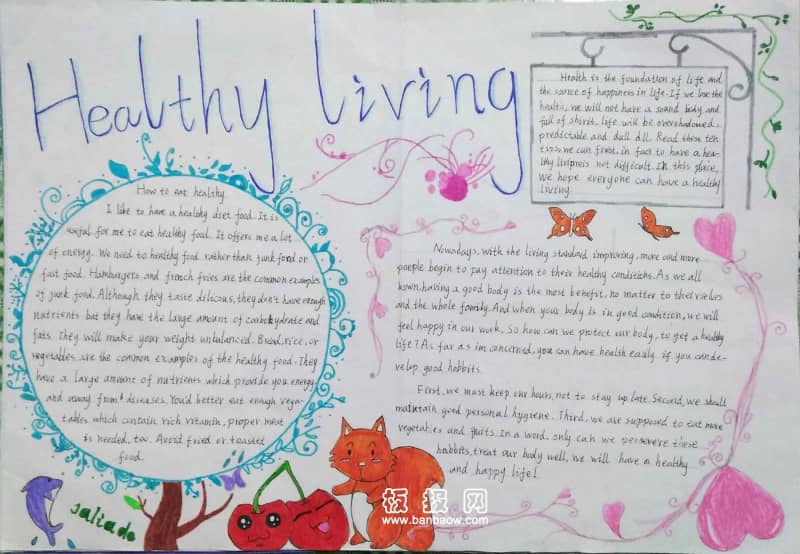 Healthy living
Health is the foundation of life and
the source of happiness in life. If we lose the
health, we will not have a sound body and
full of shirit. life will be overshadowed,
predictable and dull dll. Read these ten
tips, we can first, in fact to have a hea-
lthy is not difficult. In this place,
we hope everyone can have a healthy
living.
How to eat healthy
I like to have a healthy diet food. It is
useful for me to eat healthy food. It offers me a lot
of energy. We need to healthy food rather than junk food or
fast food. Hamburgers and french fries are the common examples
of junk food. Although they taste dilicous, they don't have enough
nutrients but they have the large amount of carbohydrate and
fats. They will make your weight unbalanced. Bread, rice, or
vegetables are the common examples of the healthy food. They
have a large amount of nutrients which provide you energy
and away from diseases. You'd better eat enough vega-
tables which contain rich vitamin, proper meat
is needed, too. Avoid fried or toasted
food.
Nowadays, with the living standard improving, more and more
people begin to pay attention to their healthy conditions. As we all
kown, having a good body is the most benefit, no matter to theirselves
and the whole family. And when your body is in good condition, we will
feel happy in our work. So how can we protect our body, to get a healthy
life? As far as im concerned, you can have health easily if you can de-
velop good habbits.
First, we must keep our hours, not to stay up late. Second, we should
maintain good personal hygiene. Third, we are supposed to eat more
vegetables and fruits. In a word, only can we persevere these
habbits, treat our body well, we will have a healthy
and happy life!
板报网
www.banbaow.com